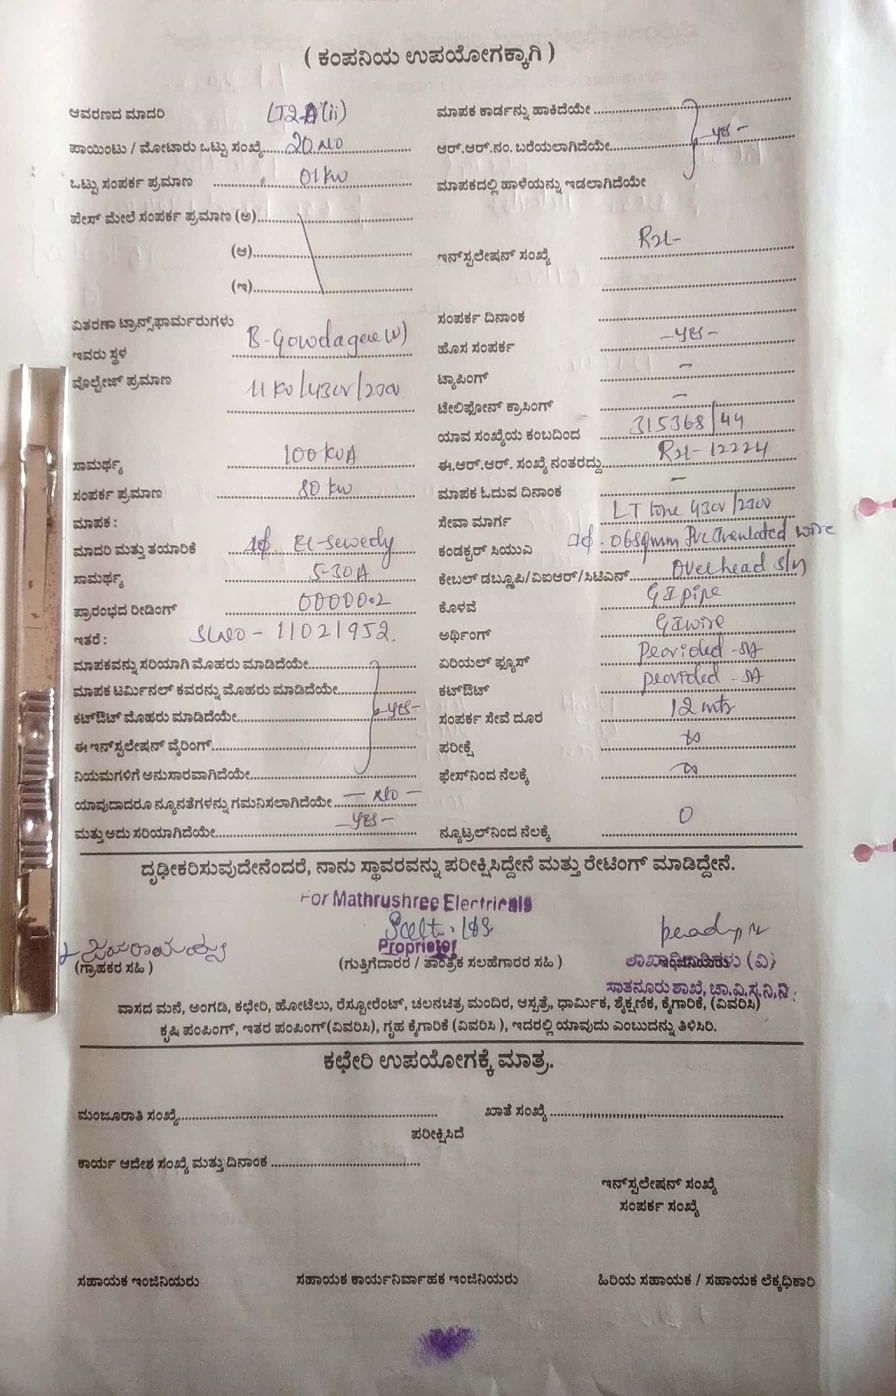 ( ಕಂಪನಿಯ ಉಪಯೋಗಕ್ಕಾಗಿ )
ಆವರಣದ ಮಾದರಿ LT2-A(ii)
ಪಾಯಿಂಟು / ಮೋಟಾರು ಒಟ್ಟು ಸಂಖ್ಯೆ 20 NO
ಒಟ್ಟು ಸಂಪರ್ಕ ಪ್ರಮಾಣ 01 KW
ಪೇಸ್ ಮೇಲೆ ಸಂಪರ್ಕ ಪ್ರಮಾಣ (ಅ)
(ಆ)
(ಇ)
ವಿತರಣಾ ಟ್ರಾನ್ಸ್‌ಫಾರ್ಮರುಗಳು
ಇವರು ಸ್ಥಳ B-Gowdagere
ವೊಲ್ಟೇಜ್ ಪ್ರಮಾಣ 11 KV/430V/230V
ಸಾಮರ್ಥ್ಯ 100 KVA
ಸಂಪರ್ಕ ಪ್ರಮಾಣ 80 KW
ಮಾಪಕ :
ಮಾದರಿ ಮತ್ತು ತಯಾರಿಕೆ 1ϕ. El-Sewedy
ಸಾಮರ್ಥ್ಯ 5-30A
ಪ್ರಾರಂಭದ ರೀಡಿಂಗ್ 000000.2
ಇತರೆ : SLNO - 11021952.
ಮಾಪಕವನ್ನು ಸರಿಯಾಗಿ ಮೊಹರು ಮಾಡಿದೆಯೇ
ಮಾಪಕ ಟರ್ಮಿನಲ್ ಕವರನ್ನು ಮೊಹರು ಮಾಡಿದೆಯೇ
ಕಟ್‌ಔಟ್ ಮೊಹರು ಮಾಡಿದೆಯೇ -YES-
ಈ ಇನ್‌ಸ್ಟಲೇಷನ್ ವೈರಿಂಗ್
ನಿಯಮಗಳಿಗೆ ಅನುಸಾರವಾಗಿದೆಯೇ
ಯಾವುದಾದರೂ ನ್ಯೂನತೆಗಳನ್ನು ಗಮನಿಸಲಾಗಿದೆಯೇ - NO -
ಮತ್ತು ಅದು ಸರಿಯಾಗಿದೆಯೇ -YES-
ಮಾಪಕ ಕಾರ್ಡನ್ನು ಹಾಕಿದೆಯೇ
ಆರ್.ಆರ್.ನಂ. ಬರೆಯಲಾಗಿದೆಯೇ -YES-
ಮಾಪಕದಲ್ಲಿ ಹಾಳೆಯನ್ನು ಇಡಲಾಗಿದೆಯೇ
ಇನ್‌ಸ್ಟಲೇಷನ್ ಸಂಖ್ಯೆ
ಸಂಪರ್ಕ ದಿನಾಂಕ
ಹೊಸ ಸಂಪರ್ಕ -YES-
ಟ್ಯಾಪಿಂಗ್ -
ಟೇಲಿಫೋನ್ ಕ್ರಾಸಿಂಗ್ -
ಯಾವ ಸಂಖ್ಯೆಯ ಕಂಬದಿಂದ 315368/44
ಈ.ಆರ್.ಆರ್. ಸಂಖ್ಯೆ ನಂತರದ್ದು 12224
ಮಾಪಕ ಓದುವ ದಿನಾಂಕ -
ಸೇವಾ ಮಾರ್ಗ LT line 430V/230V
ಕಂಡಕ್ಟರ್ ಸಿಯುವಿ 06sqmm PVC Insulated wire
ಕೇಬಲ್ ಡಬ್ಲೂಪಿ/ವಿಐಆರ್/ಸಿಟಿಎನ್ Overhead
ಕೊಳವೆ GI pipe
ಅರ್ಥಿಂಗ್ GI wire
ಏರಿಯಲ್ ಫ್ಯೂಸ್ Peovided -5A
ಕಟ್‌ಔಟ್ peovided -5A
ಸಂಪರ್ಕ ಸೇವೆ ದೂರ 12 mts
ಪರೀಕ್ಷೆ ∞
ಫೇಸ್‌ನಿಂದ ನೆಲಕ್ಕೆ ∞
ನ್ಯೂಟ್ರಲ್‌ನಿಂದ ನೆಲಕ್ಕೆ 0
ದೃಢೀಕರಿಸುವುದೇನೆಂದರೆ, ನಾನು ಸ್ಥಾವರವನ್ನು ಪರೀಕ್ಷಿಸಿದ್ದೇನೆ ಮತ್ತು ರೇಟಿಂಗ್ ಮಾಡಿದ್ದೇನೆ.
For Mathrushree Electricals
Proprietor
(ಗ್ರಾಹಕರ ಸಹಿ ) (ಗುತ್ತಿಗೆದಾರರ / ತಾಂತ್ರಿಕ ಸಲಹೆಗಾರರ ಸಹಿ ) ಶಾಖಾಧಿಕಾರಿಗಳು (ವಿ)
ಸಾತನೂರು ಶಾಖೆ, ಚಾ.ವಿ.ಸ.ನಿ.ನಿ.
ವಾಸದ ಮನೆ, ಅಂಗಡಿ, ಕಛೇರಿ, ಹೋಟೆಲು, ರೆಸ್ಟೋರೆಂಟ್, ಚಲನಚಿತ್ರ ಮಂದಿರ, ಆಸ್ಪತ್ರೆ, ಧಾರ್ಮಿಕ, ಶೈಕ್ಷಣಿಕ, ಕೈಗಾರಿಕೆ, (ವಿವರಿಸಿ)
ಕೃಷಿ ಪಂಪಿಂಗ್, ಇತರ ಪಂಪಿಂಗ್(ವಿವರಿಸಿ), ಗೃಹ ಕೈಗಾರಿಕೆ (ವಿವರಿಸಿ ), ಇದರಲ್ಲಿ ಯಾವುದು ಎಂಬುದನ್ನು ತಿಳಿಸಿರಿ.
ಕಛೇರಿ ಉಪಯೋಗಕ್ಕೆ ಮಾತ್ರ.
ಮಂಜೂರಾತಿ ಸಂಖ್ಯೆ ಖಾತೆ ಸಂಖ್ಯೆ
ಪರೀಕ್ಷಿಸಿದೆ
ಕಾರ್ಯ ಆದೇಶ ಸಂಖ್ಯೆ ಮತ್ತು ದಿನಾಂಕ
ಇನ್‌ಸ್ಟಲೇಷನ್ ಸಂಖ್ಯೆ
ಸಂಪರ್ಕ ಸಂಖ್ಯೆ
ಸಹಾಯಕ ಇಂಜಿನಿಯರು ಸಹಾಯಕ ಕಾರ್ಯನಿರ್ವಾಹಕ ಇಂಜಿನಿಯರು ಹಿರಿಯ ಸಹಾಯಕ / ಸಹಾಯಕ ಲೆಕ್ಕಧಿಕಾರಿ